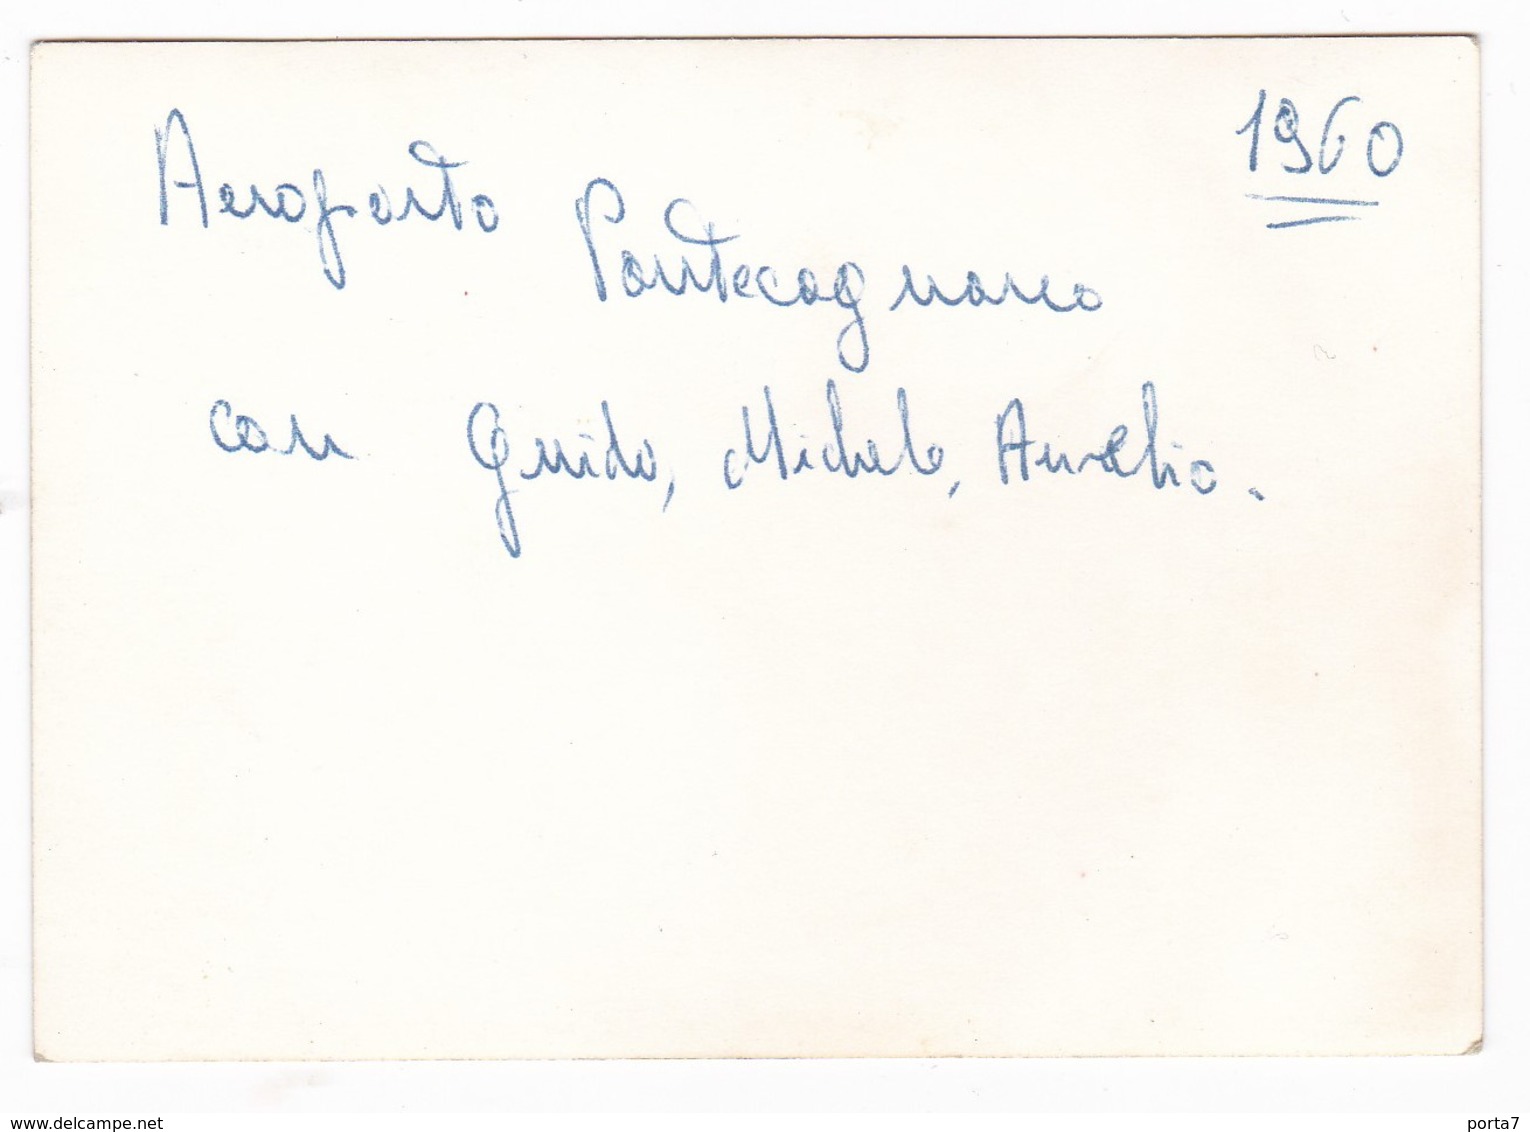 1960
Aeroporto Pontecagnano
con Guido, Michele, Aurelio.
www.delcampe.net
porta7